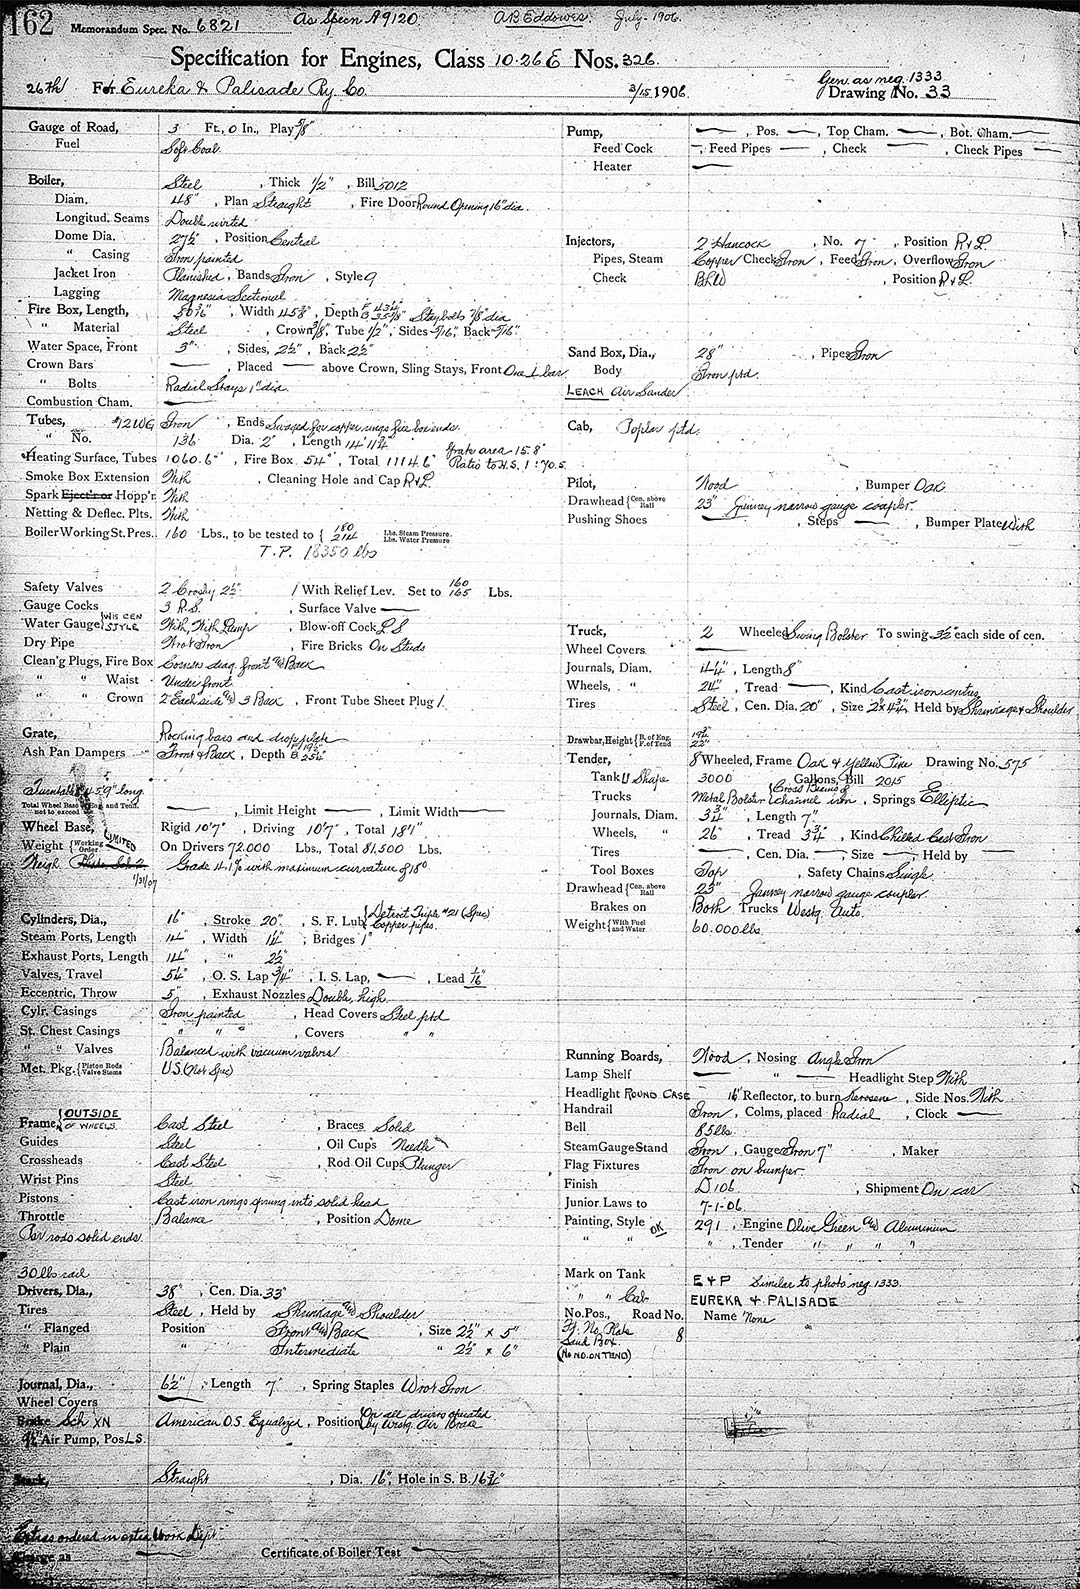 162 Memorandum Spec. No. 6821 As Specn A9120 A.B. Eddowes. July-1906.
Specification for Engines, Class 10-26 E Nos. 326.
26th For Eureka & Palisade Ry. Co. 3/15 1906 Gen. as neg. 1333 Drawing No. 33
Gauge of Road, 3 Ft., 0 In., Play 5/8"
Fuel Soft Coal
Boiler, Steel, Thick 1/2", Bill 5012
Diam. 48", Plan Straight, Fire Door Round Opening 16" dia.
Longitud. Seams Double
Dome Dia. 27½", Position Central
" Casing Iron painted
Jacket Iron Planished, Bands Iron, Style 9
Lagging Magnesia Sectional
Fire Box, Length, Width 45⅝", Depth Staybolts 7/8" dia
" Material Steel, Crown 3/8", Tube 1/2", Sides 5/16", Back 5/16"
Water Space, Front 3", Sides, 2½", Back 2½"
Crown Bars —, Placed — above Crown, Sling Stays, Front One bar
" Bolts Radial Stays 1" dia.
Combustion Cham. —
Tubes, #12 WG Iron, Ends Swaged for copper rings fire box ends.
" No. 136 Dia. 2", Length 14' 11¾"
Heating Surface, Tubes 1060.6 ", Fire Box 54 ", Total 1114.6 " Grate area - 15.8 Ratio to H.S. 1:70.5
Smoke Box Extension With, Cleaning Hole and Cap R & L
Spark Eject'r or Hopp'r. With
Netting & Deflec. Plts. With
Boiler Working St. Pres. 160 Lbs., to be tested to { 180 214 Lbs. Steam Pressure. Lbs. Water Pressure
T.P. 18350 lbs
Safety Valves 2 Crosby 2½" 1 With Relief Lev. Set to 160 165 Lbs.
Gauge Cocks 3 R.S., Surface Valve —
Water Gauge { WIS CEN STYLE With, With Lamp, Blow-off Cock L S
Dry Pipe Wrot Iron, Fire Bricks On Studs
Clean'g Plugs, Fire Box Corners diag. front & Back
" " Waist Under front
" " Crown 2 Each side & 3 Back, Front Tube Sheet Plug 1
Grate, Rocking bars and drop plate
Ash Pan Dampers Front & Back, Depth
Turntable 45'9" long.
Total Wheel Base of Eng. and Tend. not to exceed —, Limit Height —, Limit Width —
Wheel Base, Rigid 10'7", Driving 10'7", Total 18'1"
Weight { Working Order LIMITED On Drivers 72,000 Lbs., Total 81,500 Lbs.
Weigh. 1/31/07 Grade 4.1% with maximum curvature of 18°
Cylinders, Dia., 16", Stroke 20", S. F. Lub. { Detroit Triple #21 (Spec) Copper pipes.
Steam Ports, Length 14", Width 1¼", Bridges 1"
Exhaust Ports, Length 14", " 2½"
Valves, Travel 5¼", O. S. Lap ¾", I. S. Lap, —, Lead 1/16"
Eccentric, Throw 5", Exhaust Nozzles Double, high.
Cylr. Casings Iron painted, Head Covers Steel ptd
St. Chest Casings " " ", Covers " "
" " Valves Balanced with vacuum valves
Met. Pkg. { Piston Rods Valve Stems U.S. (Not Spec)
Frame { OUTSIDE OF WHEELS. Cast Steel, Braces Solid
Guides Steel, Oil Cups Needle
Crossheads Cast Steel, Rod Oil Cups Plunger
Wrist Pins Steel
Pistons Cast iron rings sprung into solid head
Throttle Balance, Position Dome
Par rods solid ends.
30 lbs rail
Drivers, Dia., 38", Cen. Dia. 33"
Tires Steel, Held by Shrinkage & Shoulder
" Flanged Position Front & Back, Size 2½" x 5"
" Plain " Intermediate " 2½" x 6"
Journal, Dia., 6½", Length 7", Spring Staples Wrot Iron
Wheel Covers —
Brake Sch XN American O.S. Equalized, Position { On all drivers operated by Westg. Air Brake
9½" Air Pump, Pos. L.S.
Stack, Straight, Dia. 16", Hole in S. B. 16¾"
Extras ordered in extra work Dept.
Charge as — Certificate of Boiler Test —
Pump, —, Pos. —, Top Cham. —, Bot. Cham. —
Feed Cock —, Feed Pipes —, Check —, Check Pipes —
Heater —
Injectors, 2 Hancock, No. 7, Position R & L.
Pipes, Steam Copper Check Iron, Feed Iron, Overflow Iron
Check BLW, Position R & L.
Sand Box, Dia., 28", Pipes Iron
Body Iron ptd.
LEACH Air Sander
Cab, Poplar ptd.
Pilot, Wood, Bumper Oak
Drawhead { Cen. above Rail 23" Janney narrow gauge coupler.
Pushing Shoes —, Steps —, Bumper Plate With
Truck, 2 Wheeled Swing Bolster To swing 3½" each side of cen.
Wheel Covers —
Journals, Diam. 4¼", Length 8"
Wheels, " 24", Tread —, Kind Cast iron centres
Tires Steel, Cen. Dia. 20", Size 2 x 4¾", Held by Shrinkage & Shoulder
Drawbar, Height { B. of Eng. F. of Tend 22"
Tender, 8 Wheeled, Frame Oak & Yellow Pine Drawing No. 575
Tank U Shape 3000 Gallons, Bill 2015
Trucks Metal Bolster { Cross Beams of channel iron, Springs Elliptic
Journals, Diam. 3¾", Length 7"
Wheels, " 26", Tread 3¾", Kind Chilled Cast Iron
Tires —, Cen. Dia. —, Size —, Held by —
Tool Boxes Top, Safety Chains Single
Drawhead { Cen. above Rail 23" Janney narrow gauge coupler.
Brakes on Both Trucks Westg. Auto.
Weight { With Fuel and Water 60,000 lbs.
Running Boards, Wood, Nosing Angle Iron
Lamp Shelf — " — Headlight Step With
Headlight ROUND CASE 16" Reflector, to burn Kerosene, Side Nos. With
Handrail Iron, Colms, placed Radial, Clock —
Bell 85 lbs.
Steam Gauge Stand Iron, Gauge Iron 7", Maker
Flag Fixtures Iron on bumper.
Finish D 106, Shipment On car
Junior Laws to 7-1-06.
Painting, Style OK 291, Engine Olive Green & Aluminium
" " ", Tender " " " "
Mark on Tank E & P Similar to photo neg. 1333.
" " Cab EUREKA & PALISADE
No. Pos., Road No. Name None
Ft. No. Plate 8
Sand Box
(NO NO. ON TEND)